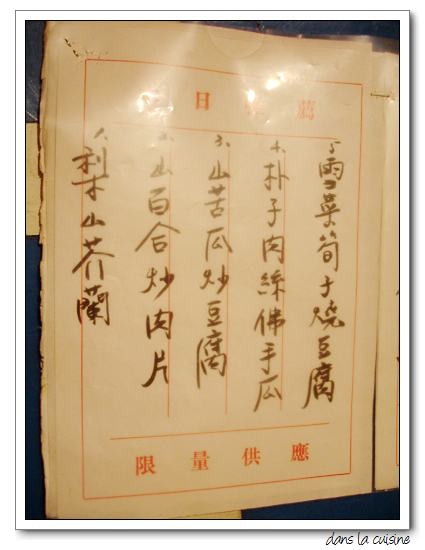 日 薦
1、梨山芥蘭
2、山百合炒肉片
3、山苦瓜炒豆腐
4、朴子肉絲佛手瓜
5、雪菜筍子燒豆腐
限量供應
dans la cuisine